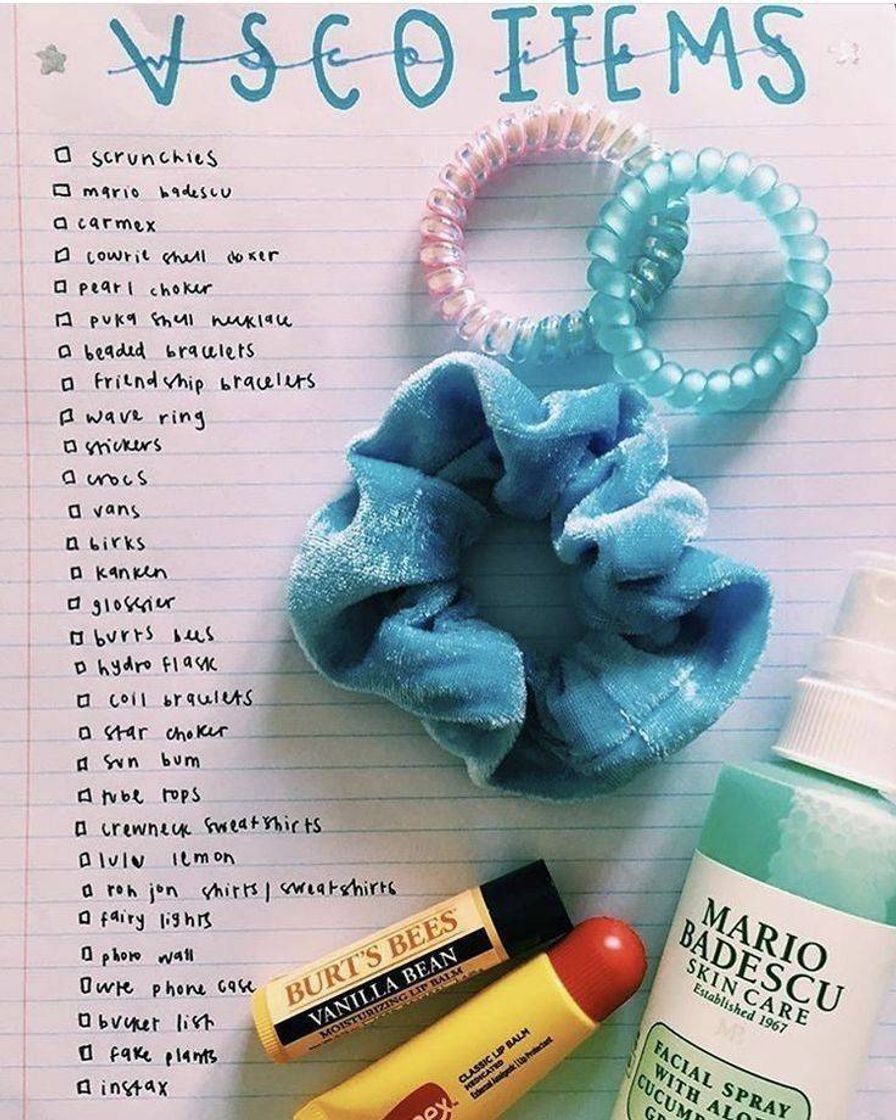 VSCO ITEMS
vsco items
scrunchies
mario badescu
carmex
cowrie shell choker
pearl choker
puka shell necklace
beaded bracelets
friendship bracelets
wave ring
stickers
crocs
vans
birks
kanken
glossier
burts bees
hydro flask
coil bracelets
star choker
sun bum
tube tops
crewneck sweatshirts
lulu lemon
ron jon shirts/sweatshirts
fairy lights
photo wall
cute phone case
bucket list
fake plants
instax
BURT'S BEES
VANILLA BEAN
MOISTURIZING LIP BALM
CLASSIC LIP BALM
MEDICATED
External Analgesic | Lip Protectant
mex
MARIO
BADESCU
SKIN CARE
Established 1967
MB
FACIAL SPRAY
WITH ALO
CUCUM